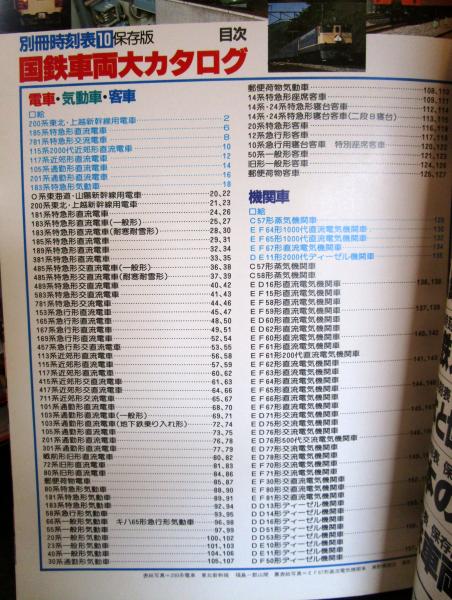 別冊時刻表10保存版
目次
国鉄車両大カタログ
電車・気動車・客車
口絵
200系東北・上越新幹線用電車 2
185系特急形直流電車 6
781系特急形交流電車 8
115系2000代近郊形直流電車 10
117系近郊形直流電車 12
105系通勤形直流電車 14
201系通勤形直流電車 16
183系特急形気動車 18
0系東海道・山陽新幹線用電車 20,22
200系東北・上越新幹線用電車 21,23
181系特急形直流電車 24,26
183系特急形直流電車(一般形) 25,27
183系特急形直流電車(耐寒耐雪形) 28,30
185系特急形直流電車 29,31
189系特急形直流電車 32,34
381系特急形直流電車 33,35
485系特急形交直流電車(一般形) 36,38
485系特急形交直流電車(耐寒耐雪形) 37,39
489系特急形交直流電車 40,42
583系特急形交直流電車 41,43
781系特急形交流電車 44,46
153系急行形直流電車 45,47
165系急行形直流電車 48,50
167系急行形直流電車 49,51
169系急行形直流電車 52,54
457系急行形交直流電車 53,55
113系近郊形直流電車 56,58
115系近郊形直流電車 57,59
117系近郊形直流電車 60,62
415系近郊形交直流電車 61,63
417系近郊形交直流電車 64,66
711系近郊形交流電車 65,67
101系通勤形直流電車 68,70
103系通勤形直流電車(一般形) 69,71
103系通勤形直流電車(地下鉄乗り入れ形) 72,74
105系通勤形直流電車 73,75
201系通勤形直流電車 76,78
301系通勤形直流電車 77,79
戦前形旧形直流電車 80,82
72系旧形直流電車 81,83
80系旧形直流電車 84,86
郵便荷物電車 85,87
80系特急形気動車 88,90
181系特急形気動車 89,91
183系特急形気動車 92,94
58系急行形気動車 93,95
66系一般形気動車 キハ65形急行形気動車 96,98
55系一般形気動車 97,99
20系一般形気動車 100,102
23系一般形気動車 101,103
40系一般形気動車 104,106
30系通勤形気動車 105,107
郵便荷物気動車 108,110
14系特急形座席客車 109,111
14系・24系特急形寝台客車 112,114
14系・24系特急形寝台客車(二段B寝台) 113,115
20系特急形寝台客車 116,118
12系急行形客車 117,119
10系急行用寝台客車 特別座席客車 120,122
50系一般形客車 121,123
旧形一般形客車 124,126
郵便荷物客車 125,127
機関車
口絵
C57形蒸気機関車
EF64形1000代直流電気機関車 130
EF65形1000代直流電気機関車 132
EF67形直流電気機関車 134
DE11形2000代ディーゼル機関車
C57形蒸気機関車
C58形蒸気機関車
ED16形直流電気機関車
EF15形直流電気機関車
EF58形直流電気機関車
ED60形直流電気機関車
ED62形直流電気機関車
EF60形直流電気機関車
EF61形直流電気機関車
EF61形200代直流電気機関車
EF62形直流電気機関車
EF63形直流電気機関車
EF64形直流電気機関車
EF65形直流電気機関車
EF66形直流電気機関車
EF67形直流電気機関車
ED71形交流電気機関車
ED75形交流電気機関車
ED76形交流電気機関車
ED76形500代交流電気機関車
ED77形交流電気機関車
ED78形交流電気機関車
EF70形交流電気機関車
EF71形交流電気機関車
EF30形交直流電気機関車
EF80形交直流電気機関車
EF81形交直流電気機関車
DD13形ディーゼル機関車
DD14形ディーゼル機関車
DD16形ディーゼル機関車
DD51形ディーゼル機関車
DE10形ディーゼル機関車
DE11形ディーゼル機関車
DE15形ディーゼル機関車
DF50形ディーゼル機関車
表紙写真=200系電車 東北新幹線 福島―郡山間